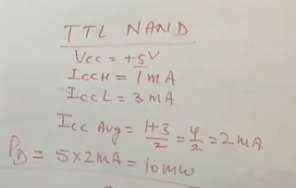 TTL NAND
Vcc = +5V
IccH = 1 mA
IccL = 3 mA
Icc Avg = 1+3/2 = 4/2 = 2mA
PD = 5x2mA = 10mw